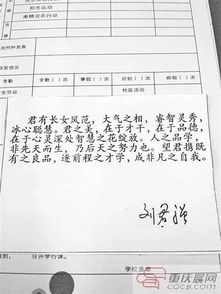 阳光运动
全勤（ ）次
事假（ ）次
迟到（ ）次
病假（ ）次
社区劳动
君有长女风范，大气之相，睿智灵秀，
冰心聪慧。君之美，在于才干，在于品德，
在于心灵深处智慧之花绽放。人之品学，
非先天而生，乃后天之努力也。望君携既
有之良品，逐前程之才学，成非凡之自我。
学校盖章
重庆晨网